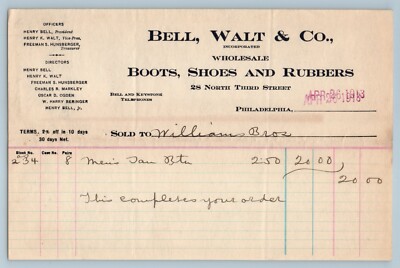 OFFICERS
HENRY BELL, President
HENRY K. WALT, Vice-Pres.
FREEMAN S. HUNSBERGER,
Treasurer
DIRECTORS
HENRY BELL
HENRY K. WALT
FREEMAN S. HUNSBERGER
CHARLES R. MARKLEY
OSCAR D. OGDEN
W. HARRY BERINGER
HENRY BELL, Jr.
TERMS, 2% off in 10 days
30 days Net.
BELL, WALT & CO.,
INCORPORATED
WHOLESALE
BOOTS, SHOES AND RUBBERS
28 NORTH THIRD STREET
BELL AND KEYSTONE
TELEPHONES
PHILADELPHIA,
APR 26 1913
SOLD TO Williams Bros
Stock No. Case No. Pairs
234 8 Men's Tan Btn 2.50 20.00
20.00
This completes your order